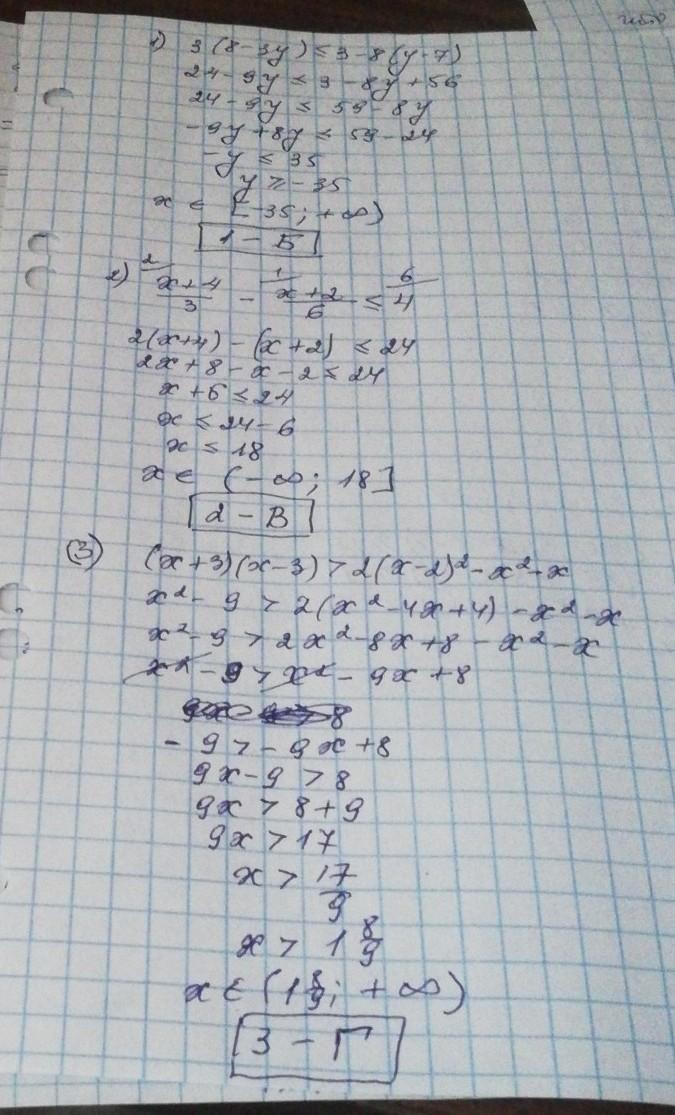 1) 3(8-3y) ≤ 3-8(y-7)
24-9y ≤ 3-8y+56
24-9y ≤ 59-8y
-9y+8y ≤ 59-24
-y ≤ 35
y ≥ -35
x ∈ [-35; +∞)
1 - Б
2) ²⁄ (x+4)/3 - ¹⁄ (x+2)/6 ≤ ⁶⁄ 4
2(x+4) - (x+2) ≤ 24
2x+8-x-2 ≤ 24
x+6 ≤ 24
x ≤ 24-6
x ≤ 18
x ∈ (-∞; 18]
2 - В
3) (x+3)(x-3) > 2(x-2)²-x²-x
x²-9 > 2(x²-4x+4)-x²-x
x²-9 > 2x²-8x+8-x²-x
x²-9 > x²-9x+8
-9 > -9x+8
9x-9 > 8
9x > 8+9
9x > 17
x > 17/9
x > 1 8/9
x ∈ (1 8/9; +∞)
3 - Г